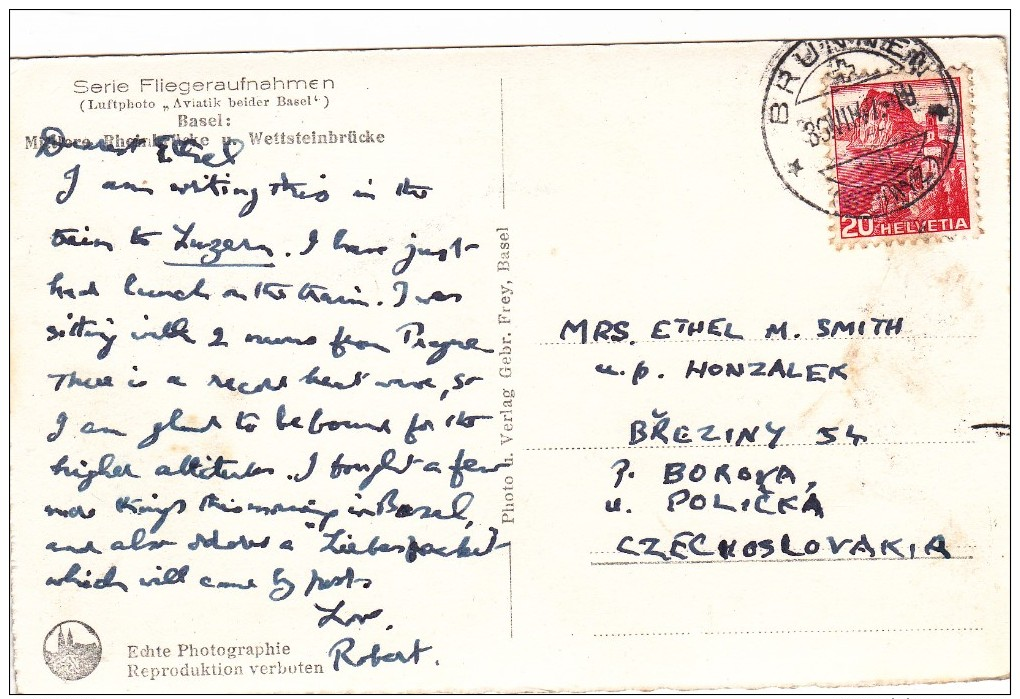 Serie Fliegeraufnahmen
(Luftphoto „Aviatik beider Basel“)
Basel:
Mittlere Rheinbrücke u. Wettsteinbrücke
Dearest Ethel
I am writing this in the
train to Luzern. I have just
had lunch on the train. I was
sitting with 2 nuns from Prague
There is a record heat wave, so
I am glad to be bound for the
higher altitudes. I bought a few
more things this morning in Basel,
and also ordered a "Liebespacket"
which will come by post
Love,
Robert.
Echte Photographie
Reproduktion verboten
Photo u. Verlag Gebr. Frey, Basel
BRUNNEN
20 HELVETIA
MRS. ETHEL M. SMITH
u. p. HONZALEK
BŘEZINY 54
P. BOROVA,
u. POLIČKA
CZECHOSLOVAKIA